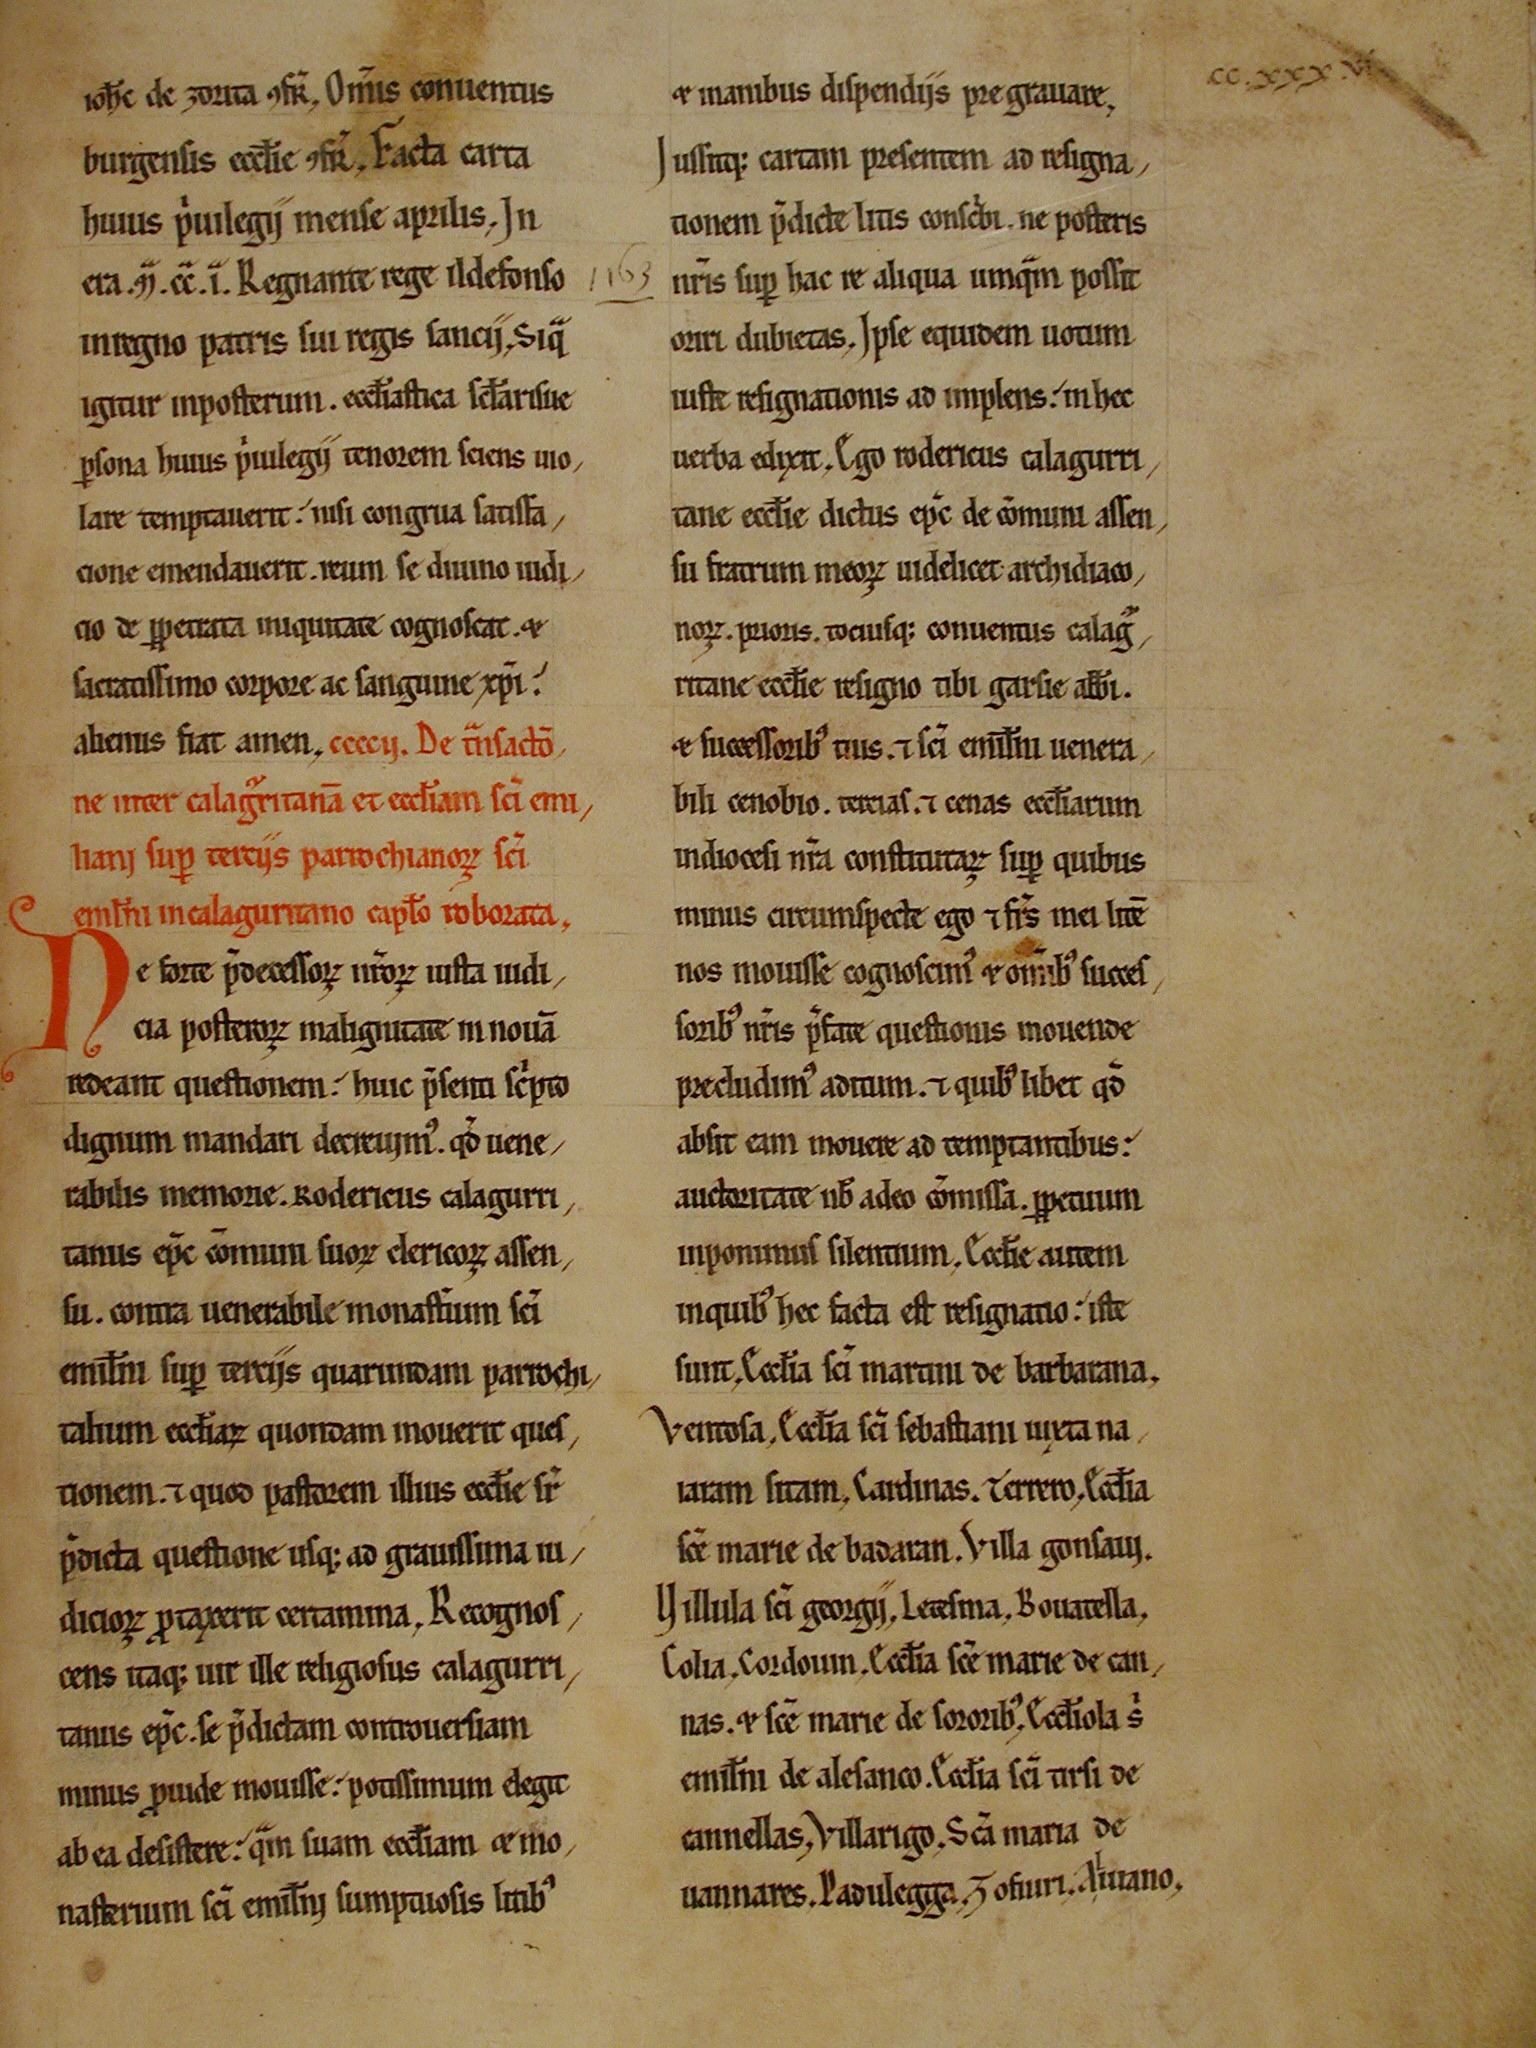 cc.xxxvi
ioħc de zorita ꝯfr̃. Om̃is conuentus
burgensis eccl̃ie ꝯfr̃. Facta carta
huius p̃uilegij mense aprilis. In
era .m̃.cc̃.i̅. Regnante rege ildefonso
in regno patris sui regis sancij. Siq̃
igitur inposterum. eccl̃iastica sc̃larisue
ꝑsona huius p̃uilegij tenorem sciens uio,
lare temptauerit: nisi congrua satisfa,
cione emendauerit. reum se diuino iudi,
cio de ꝑpetrata iniquitate cognoscat. &
sacratissimo corpore ac sanguine xp̃i:
alienus fiat amen. ccccij. De t̃nsactõ,
ne inter calag̃rritanã et eccl̃iam sc̃i emi,
lianj suꝑ tercijs parrochianoꝝ sc̃i
emil̃ni in calagurritano capl̃o roborata.
Ne forte p̃decessoꝝ nr̃oꝝ iusta iudi,
cia posteroꝝ malignitate in nouã
redeant questionem: huic p̃senti sc̃pto
dignum mandari decreuim᾽. qd̃ uene,
rabilis memorie. Rodericus calagurri,
tanus ep̃c cõmuni suoꝝ clericoꝝ assen,
su. contra uenerabile monast̃ium sc̃i
emil̃ni suꝑ tercijs quarundam parrochi,
talium eccl̃iaꝝ quondam mouerit ques,
tionem. ⁊ quod pastorem illius eccl̃ie sr̃
p̃dicta questione usq; ad grauissima iu,
dicioꝝ ꝓtaxerit certamina. Recognos,
cens itaq; uir ille religiosus calagurri,
tanus ep̃c. se p̃dictam controuersiam
minus ꝓuide mouisse: potissimum elegit
ab ea desistere: q̃m suam eccl̃iam & mo,
nasterium sc̃i emil̃nj sumptuosis litib᾽
1163
& inanibus dispendijs pregrauare,
Jussitq; cartam presentem ad resigna,
tionem p̃dicte litis consc̃bi. ne posteris
nr̃is suꝑ hac re aliqua umq̃m possit
oriri dubietas. Ipse equidem uotum
iuste resignationis adimplens: in hec
uerba edixit. Ego rodericus calagurri,
tane eccl̃ie dictus ep̃c de cõmuni assen,
su fratrum meoꝝ uidelicet archidiaco,
noꝝ. prioris. tociusq; conuentus calag̃,
ritane eccl̃ie resigno tibi garsie abb̃i.
& successorib᾽ tuis. ⁊ sc̃i emil̃ni uenera,
bili cenobio. tercias. ⁊ cenas eccl̃iarum
in diocesi nr̃a constitutaꝝ suꝑ quibus
minus circumspecte ego ⁊ fr̃s mei litẽ
nos mouisse cognoscim᾽ & om̃ib᾽ succes,
sorib᾽ nr̃is p̃fate questionis mouende
precludim᾽ aditum. ⁊ quib᾽ libet qd̃
absit eam mouere ad temptantibus:
auctoritate nb̃ adeo cõmissa. ꝑpetuum
inponimus silentium. Eccl̃ie autem
in quib᾽ hec facta est resignatio: iste
sunt. Eccl̃ia sc̃i martini de barbarana.
Ventosa. Eccl̃ia sc̃i sebastiani iuxta na,
iaram sitam. Cardinas. Terrero. Eccl̃ia
sc̃e marie de badaran. Villa gonsaui.
Villula sc̃i georgij. Letesma. Bouatella.
Colia. Cordouin. Eccl̃ia sc̃e marie de can,
nas. & sc̃e marie de sororib᾽. Eccl̃iola s̃
emil̃ni de alesanco. Eccl̃ia sc̃i tirsi de
cannellas. Villarigo. Sc̃a maria de
uannares. Padulegga. Zofiuri.